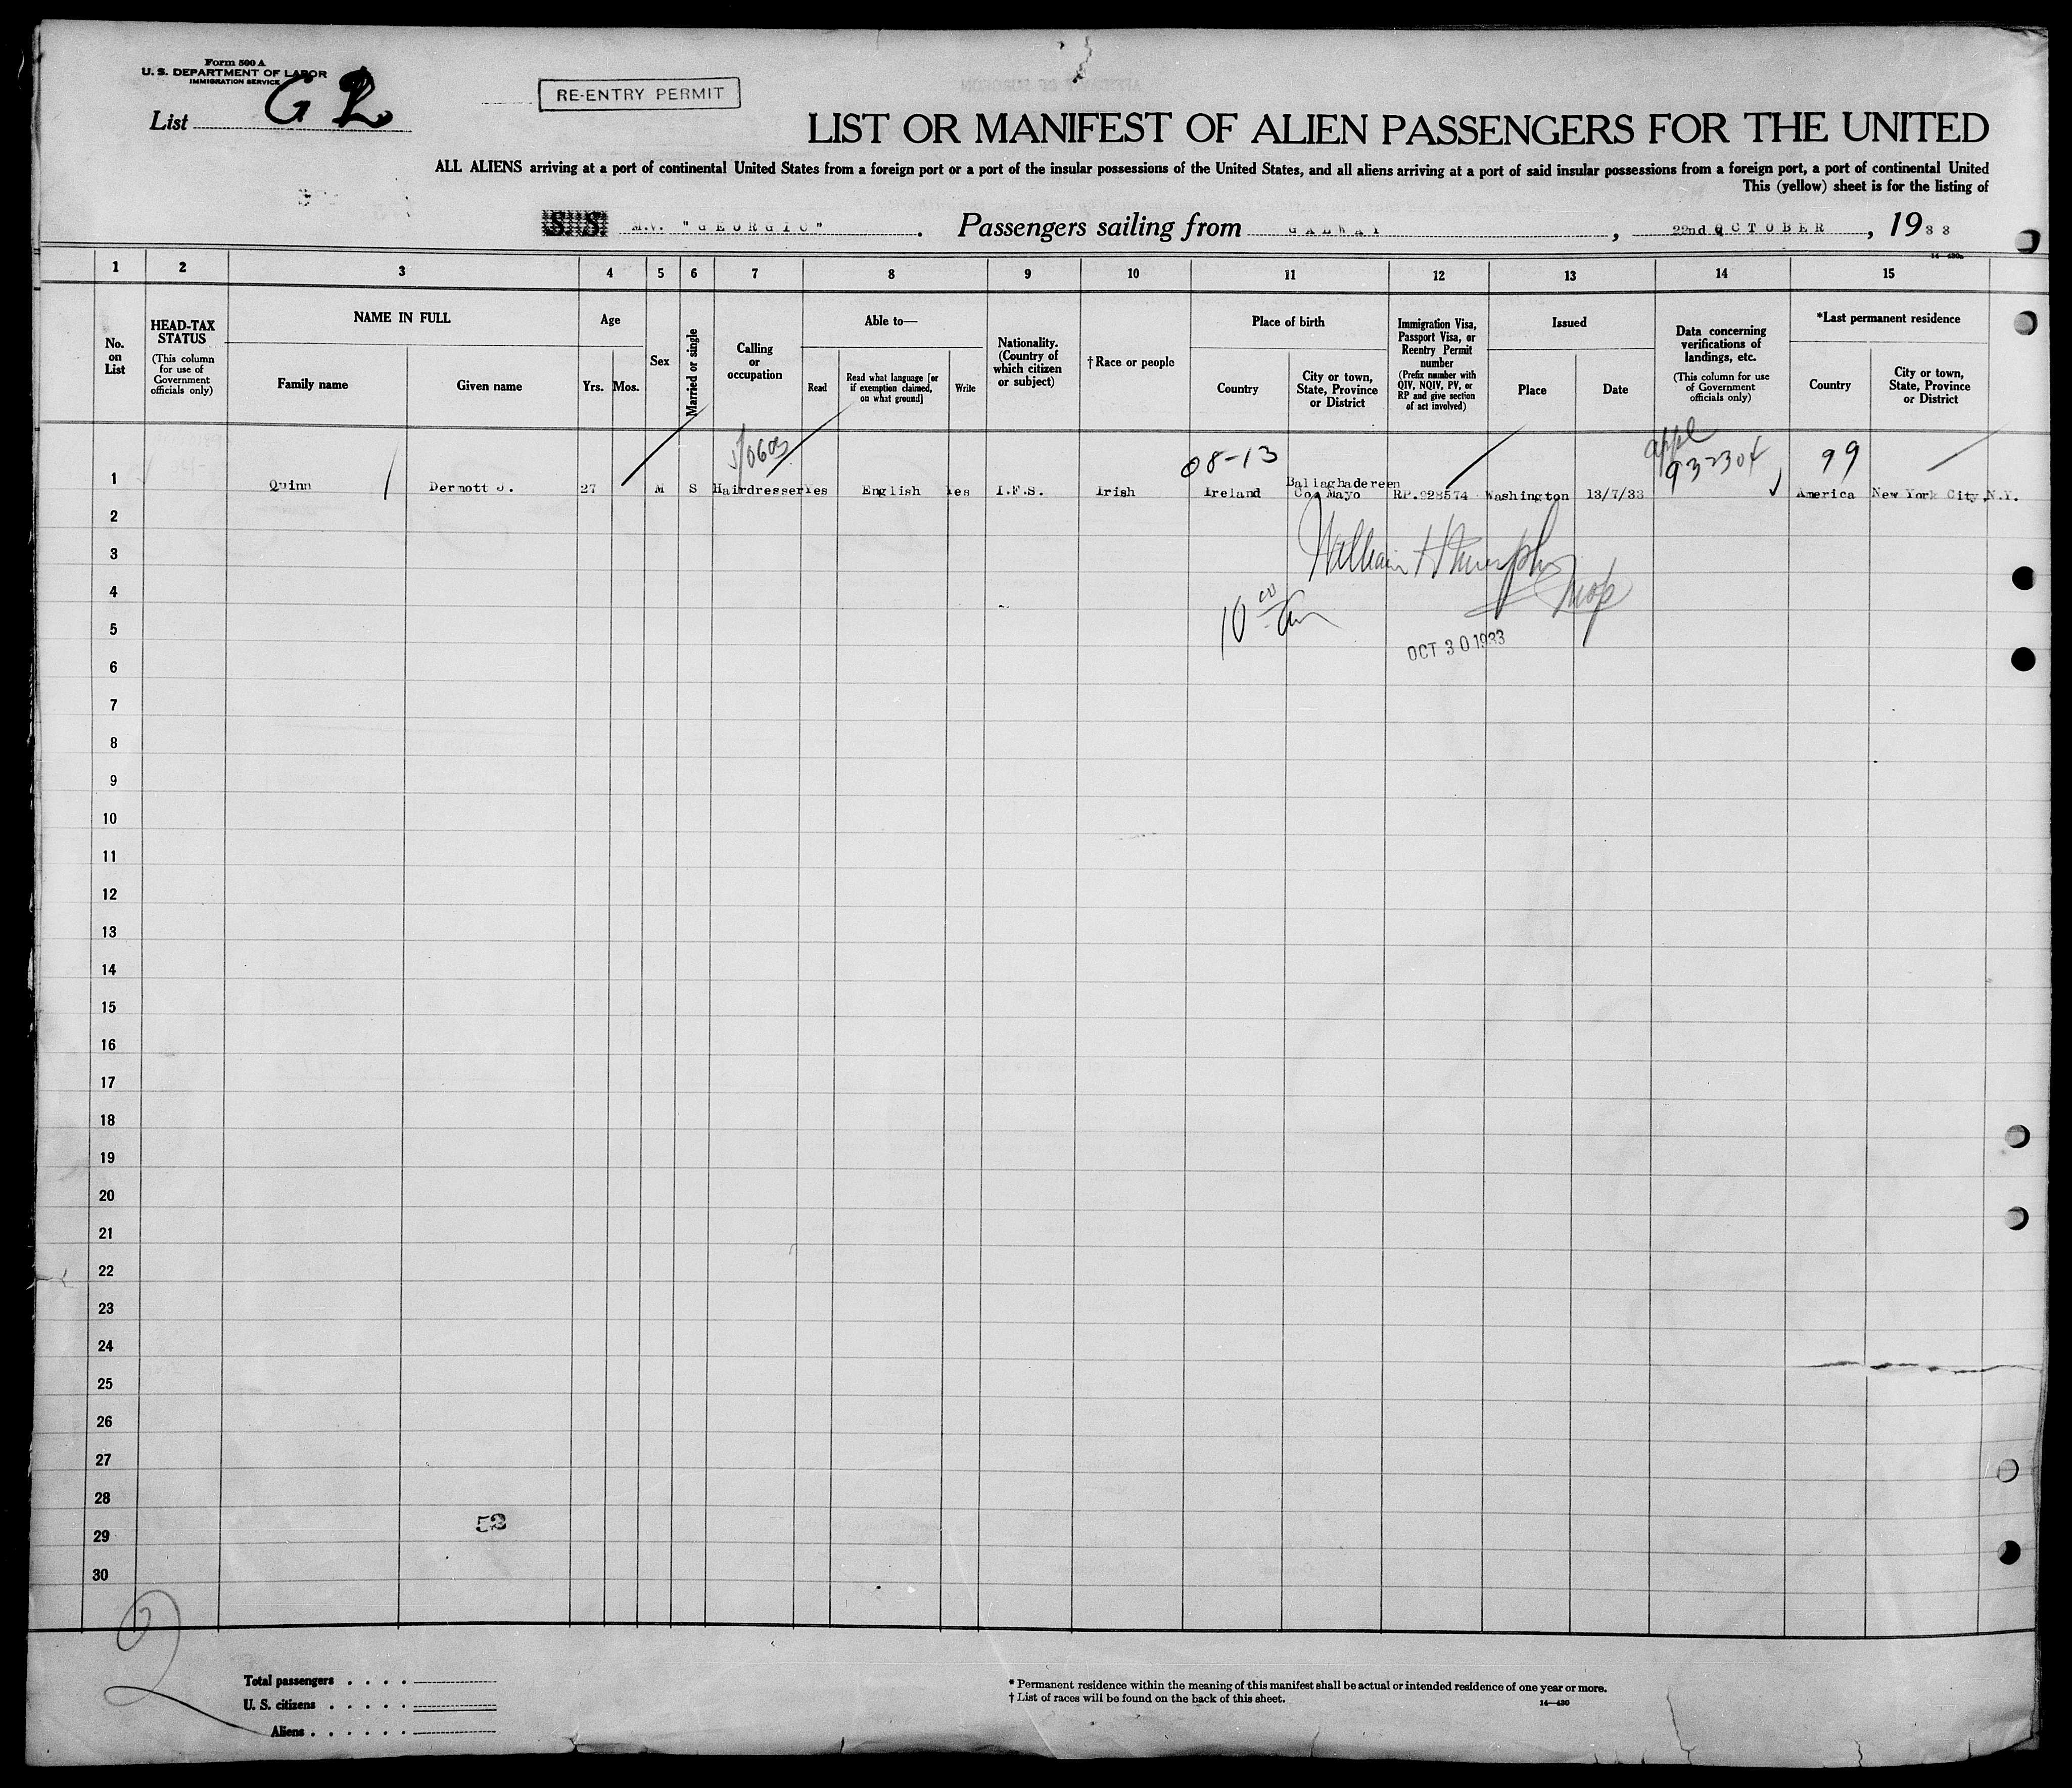 Form 500 A
U. S. DEPARTMENT OF LABOR
IMMIGRATION SERVICE
List G 2
RE-ENTRY PERMIT
LIST OR MANIFEST OF ALIEN PASSENGERS FOR THE UNITED
ALL ALIENS arriving at a port of continental United States from a foreign port or a port of the insular possessions of the United States, and all aliens arriving at a port of said insular possessions from a foreign port, a port of continental United
This (yellow) sheet is for the listing of
S. S. M.V. "GEORGIC". Passengers sailing from GALWAY, 22nd OCTOBER, 1933
14—430a
1 2 3 4 5 6 7 8 9 10 11 12 13 14 15
No. on List
HEAD-TAX STATUS
(This column for use of Government officials only)
NAME IN FULL
Family name
Given name
Age
Yrs. Mos.
Sex
Married or single
Calling or occupation
Able to—
Read
Read what language [or if exemption claimed, on what ground]
Write
Nationality. (Country of which citizen or subject)
†Race or people
Place of birth
Country
City or town, State, Province or District
Immigration Visa, Passport Visa, or Reentry Permit number
(Prefix number with QIV, NQIV, PV, or RP and give section of act involved)
Issued
Place
Date
Data concerning verifications of landings, etc.
(This column for use of Government officials only)
*Last permanent residence
Country
City or town, State, Province or District
08-13
appl
932304
99
1 Quinn Dermott J. 27 M S Hairdresser Yes English Yes I.F.S. Irish Ireland Ballaghadereen Co. Mayo RP.928574 Washington 13/7/33 America New York City, N.Y.
2
3
William H Murphy
4
10 00 am
5
OCT 30 1933
6
7
8
9
10
11
12
13
14
15
16
17
18
19
20
21
22
23
24
25
26
27
28
29
52
30
2
Total passengers . . . .
U. S. citizens . . . . .
Aliens . . . . . .
* Permanent residence within the meaning of this manifest shall be actual or intended residence of one year or more.
† List of races will be found on the back of this sheet.
14—430